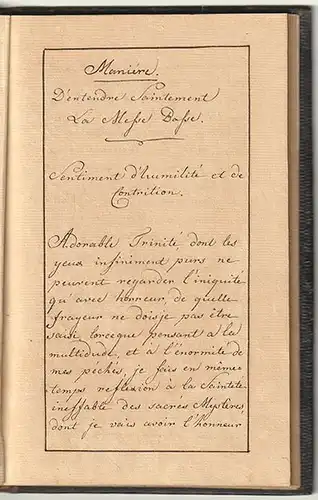 Maniére.
D'entendre Saintement
La Messe Basse.
Sentiment d'humilité et de
Contrition.
Adorable Trinité, dont les
yeux infiniment purs ne
peuvent regarder l'iniquité
qu'avec horreur, de quelle
frayeur ne doisje pas être
saisi, lorceque pensant a la
multidude, et à l'énormité de
mes péchés, je fais en même
temps reflexion à la Sainteté
ineffable des sacrés Mystères
dont je vais avoir l'honneur